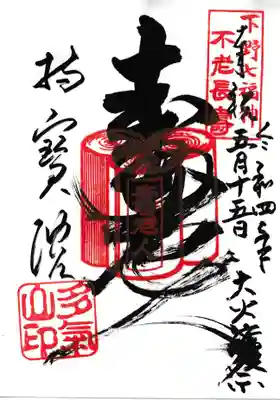 下野七福神
不老長寿
奉拝
令和四年
五月十五日
大火護摩祭
寿老尊
寿老人
持寳院
多氣
山印